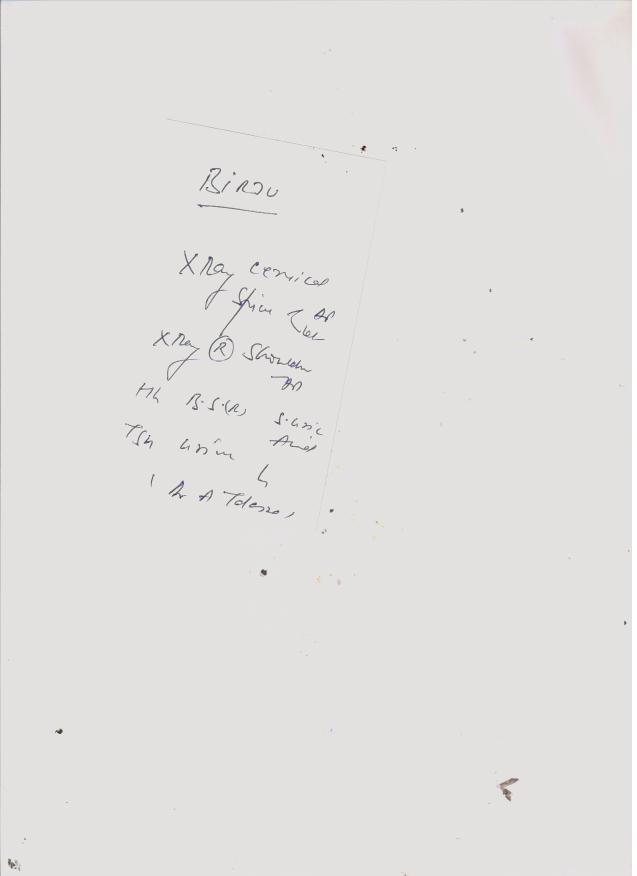 BIRJU
X Ray cervical
Spine AP
Lat
X Ray (R) Shoulder
AP
Hb B.S.(R) S. Uric
Acid
TSH Urine